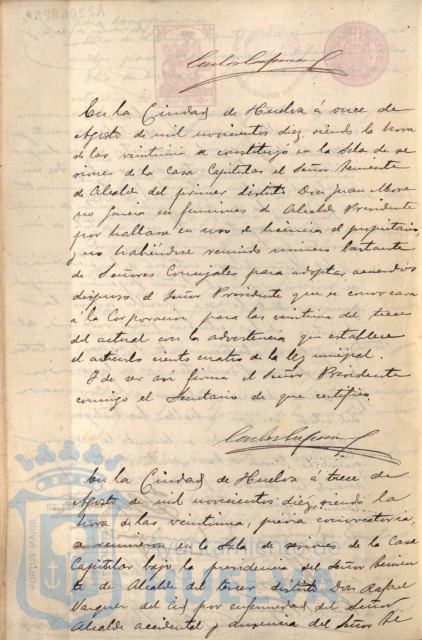 En la Ciudad de Huelva á once de
Agosto de mil novecientos diez, siendo la hora
de las veintiuna se constituyó en la Sala de se
siones de la Casa Capitular el Señor Teniente
de Alcalde del primer distrito Don Juan More
no García en funciones de Alcalde Presidente
por hallarse en uso de licencia el propietario
y no habiéndose reunido número bastante
de Señores Concejales para adoptar acuerdos
dispuso el Señor Presidente que se convocara
á la Corporacion para las veintiuna del trece
del actual con la advertencia que establece
el artículo ciento cuatro de la ley municipal.
Y de ser así firma el Señor Presidente
conmigo el Secretario de que certifico.
En la Ciudad de Huelva á trece de
Agosto de mil novecientos diez, siendo la
hora de las veintiuna, previa convocatoria,
se reunieron en la Sala de sesiones de la Casa
Capitular bajo la presidencia del Señor Tenien
te de Alcalde del tercer distrito Don Rafael
Vazquez del Cid por enfermedad del Señor
Alcalde accidental y ausencia del Señor Te
PORTUS MARIS